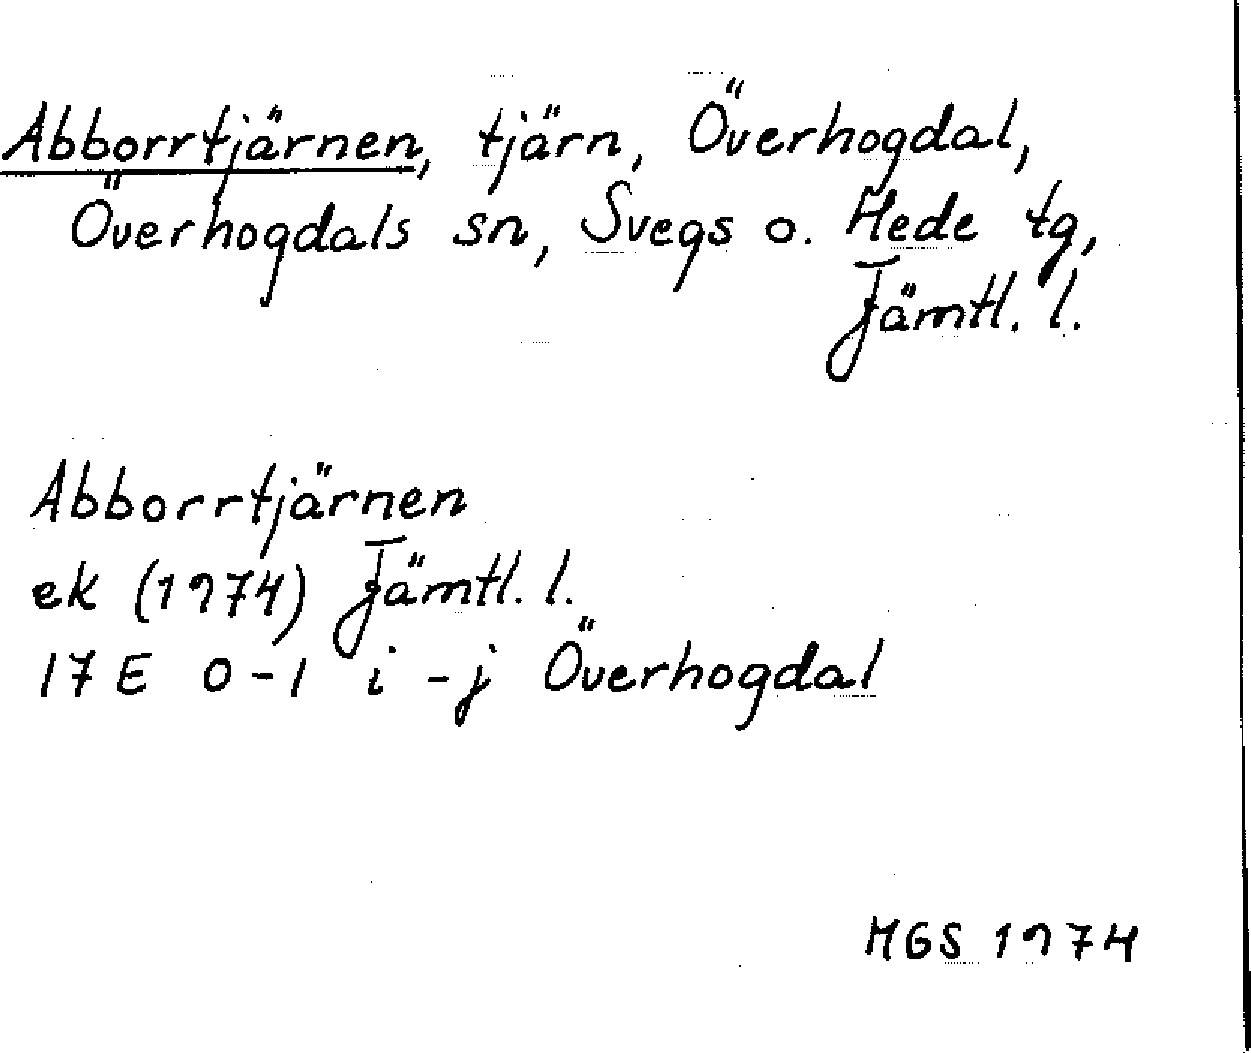 Abborrtjärnen, tjärn, Överhogdal,
Överhogdals sn, Svegs o. Hede tg,
Jämtl. l.
Abborrtjärnen
ek (1974) Jämtl. l.
17 E 0-1 i-j Överhogdal
MGS 1974